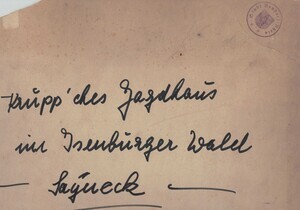 Krupp'ches Jagdhaus
im Isenburger Wald
— Sayneck —